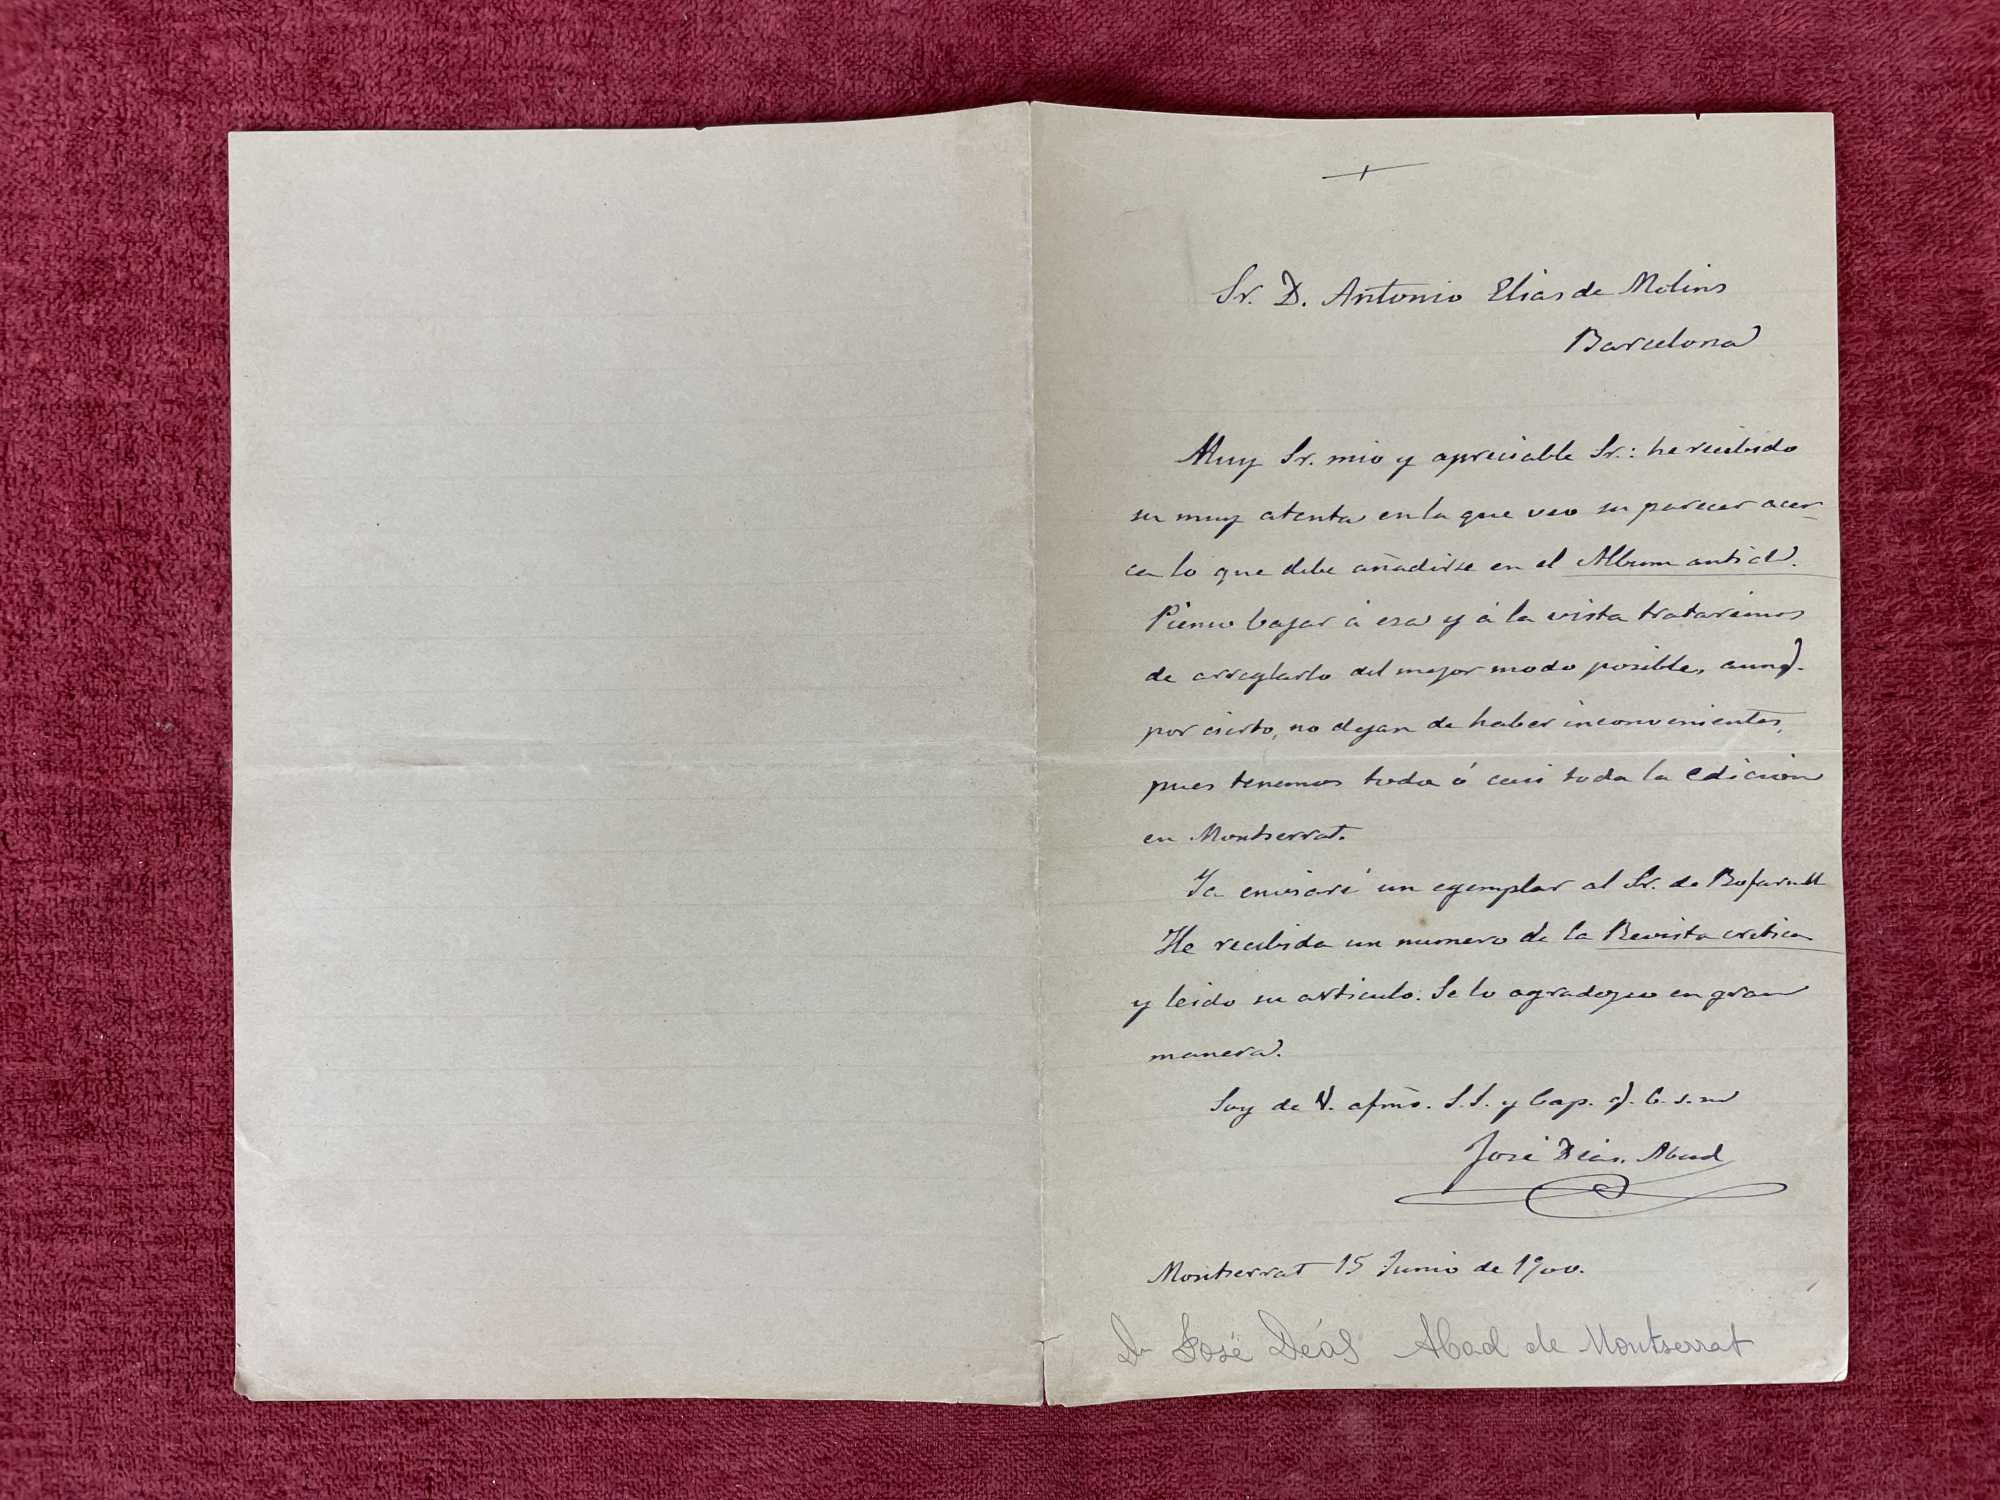 Sr. D. Antonio Elias de Molins
Barcelona
Muy Sr. mio y apreciable Sr.: he recibido
su muy atenta en la que veo su parecer acer-
ca lo que debe añadirse en el Album
Pienso bajar á esa y á la vista trataremos
de arreglarlo del mejor modo posible, aunq.
por cierto, no dejan de haber inconvenientes,
pues tenemos toda ó casi toda la edicion
en Montserrat.
Ya enviaré un ejemplar al Sr. de Bofarull
He recibido un numero de la Revista critica
y leido su articulo. Se lo agradezco en gran
manera.
Soy de V. afmo. S.S. y Cap. q. b. s. m
José Deás. Abad
Montserrat 15 Junio de 1900.
Dn José Deás Abad de Montserrat